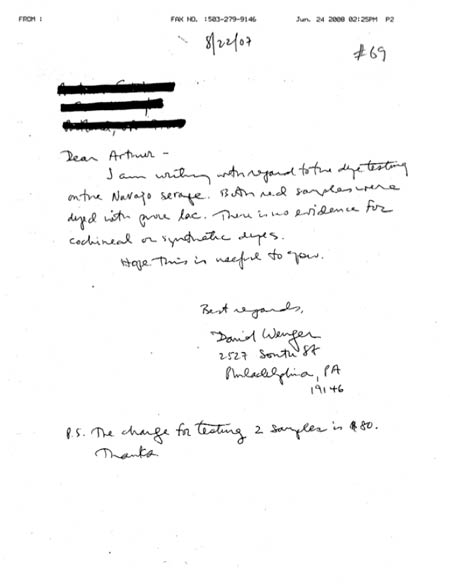 FROM : FAX NO. :503-279-9146 Jun. 24 2008 02:25PM P2
8/22/07
#69
Dear Arthur -
I am writing with regard to the dye testing
on the Navajo serape. Both red samples were
dyed with pure lac. There is no evidence for
cochineal or synthetic dyes.
Hope this is useful to you.
Best regards,
David Wenger
2527 South St
Philadelphia, PA
19146
P.S. The charge for testing 2 samples is $80.
Thanks